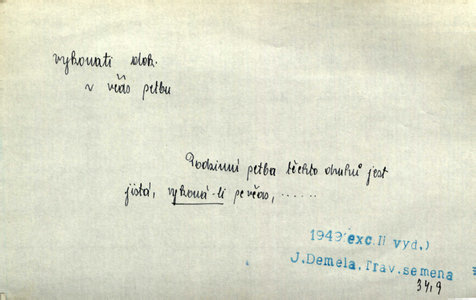 vykonati dok.
v včas petbu
Podzimní petba těchto druhů jest
jistá, vykoná-li pe včas, ......
1949 exc. II vyd.)
J.Demela.Trav.semena
34,9